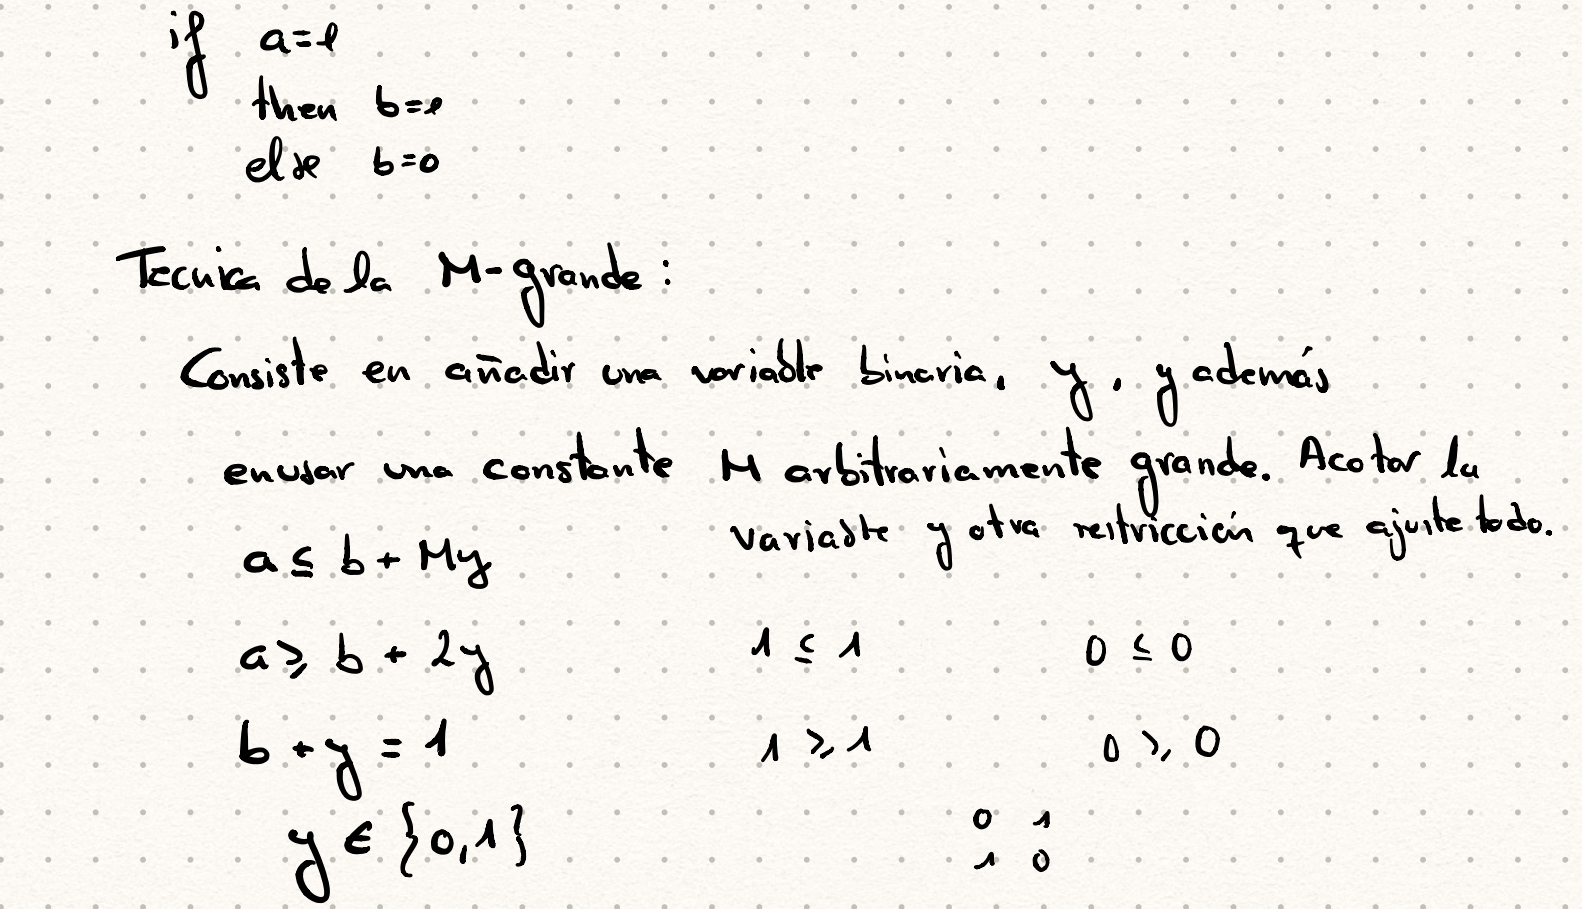 if a=1
then b=1
else b=0
Tecnica de la M-grande:
Consiste en añadir una variable binaria, y, y además
en usar una constante M arbitrariamente grande. Acotar la
variable y otra restricción que ajuste todo.
a ≤ b + My
a ≥ b + 2y 1 ≤ 1 0 ≤ 0
b + y = 1 1 ≥ 1 0 ≥ 0
y ∈ {0,1} 0 1
1 0